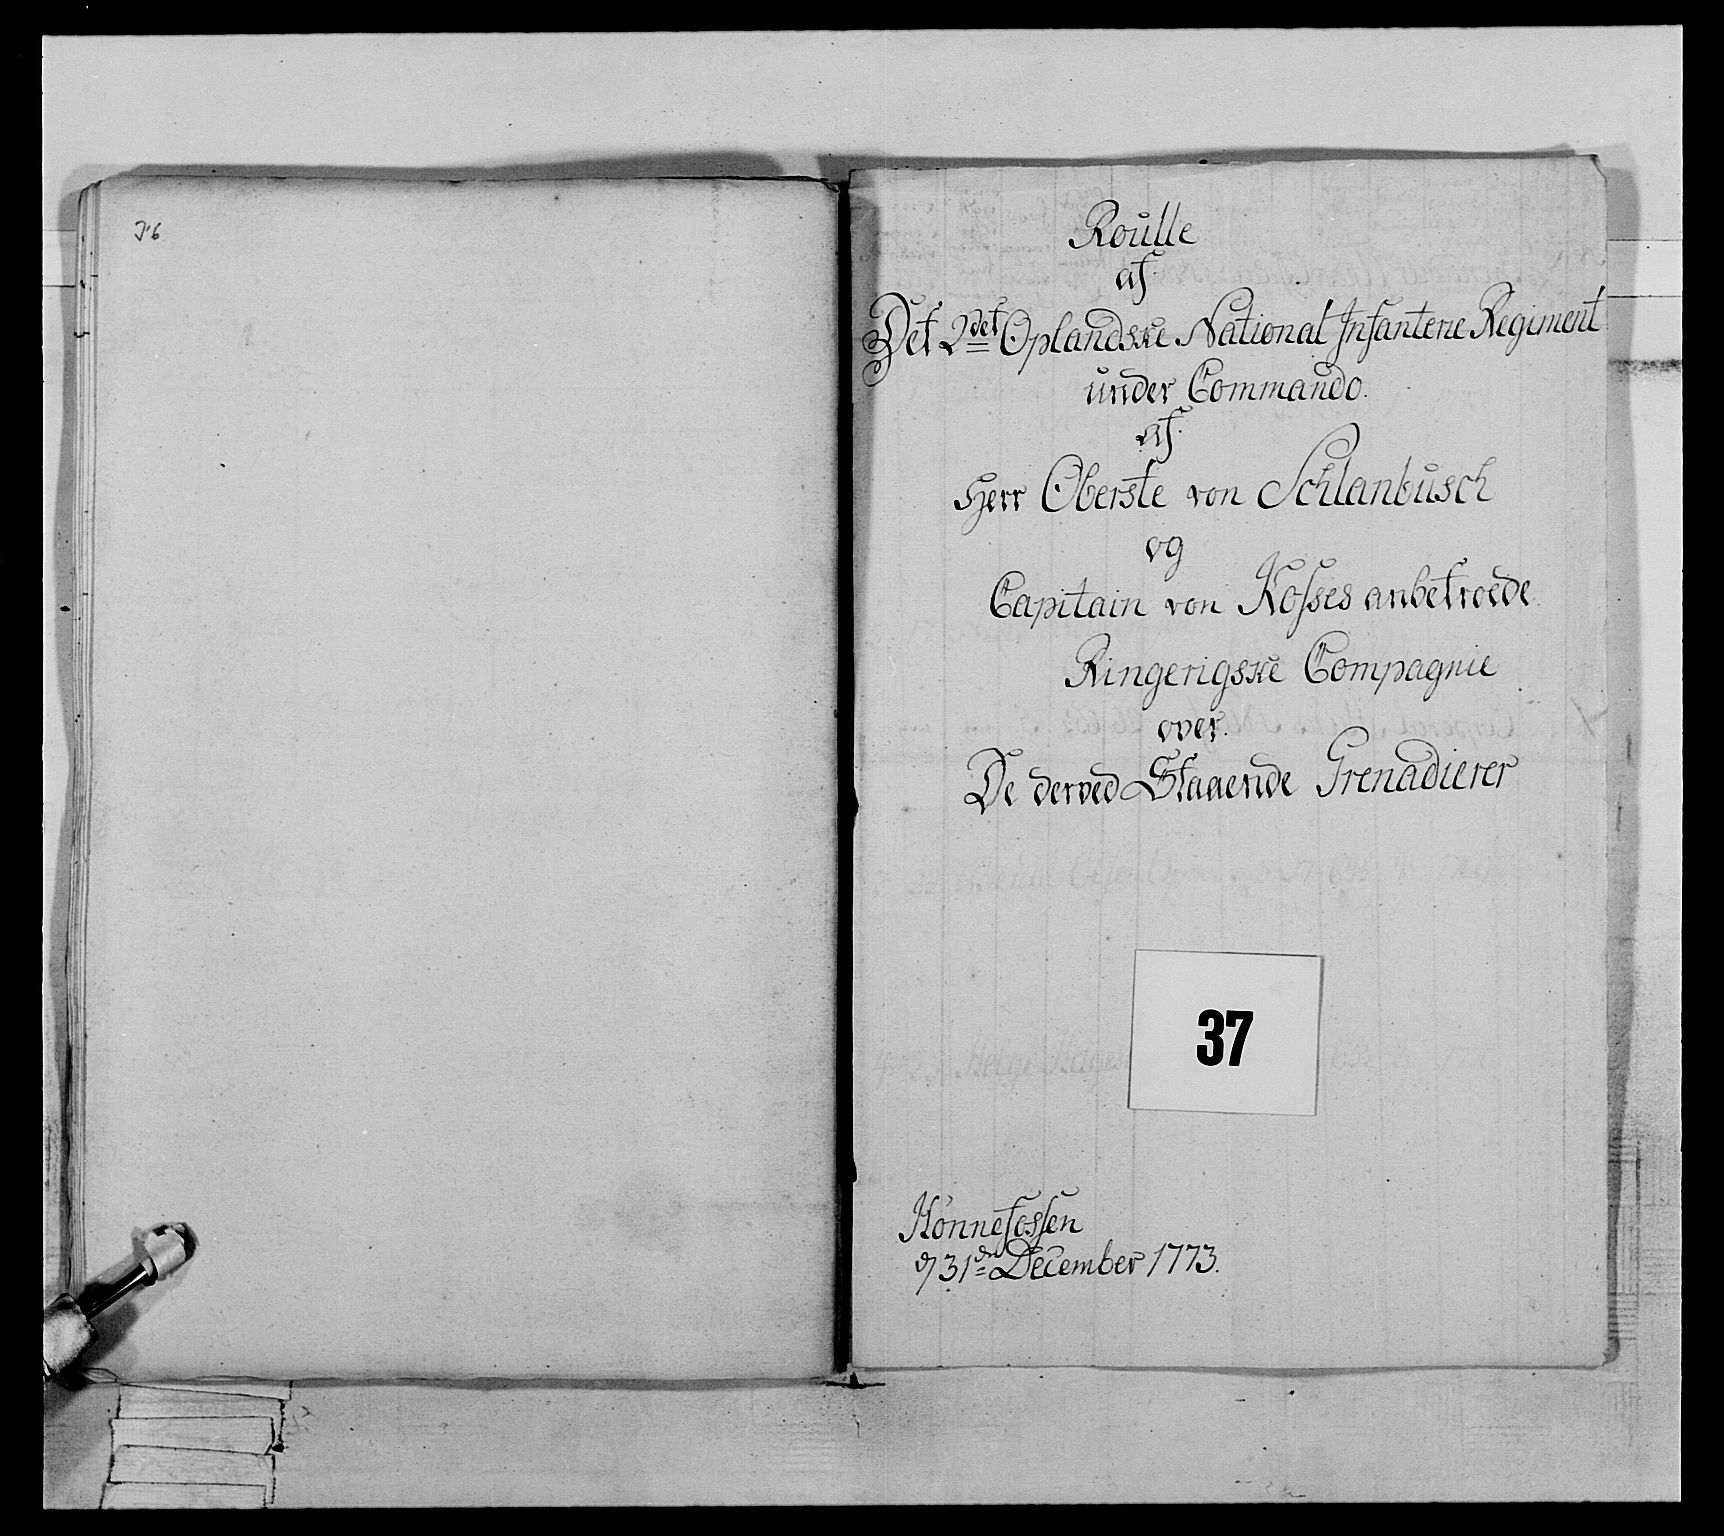 36
Roulle
af
Det 2det Oplandske National Infanterie Regiment
under Commando.
af
Herr Oberste von Schlanbusch
og
Capitain von Kosses anbetroede
Ringerigske Compagnie
over.
De derved Staaende Grenadierer
37
Hönnefossen
d 31dn December 1773.